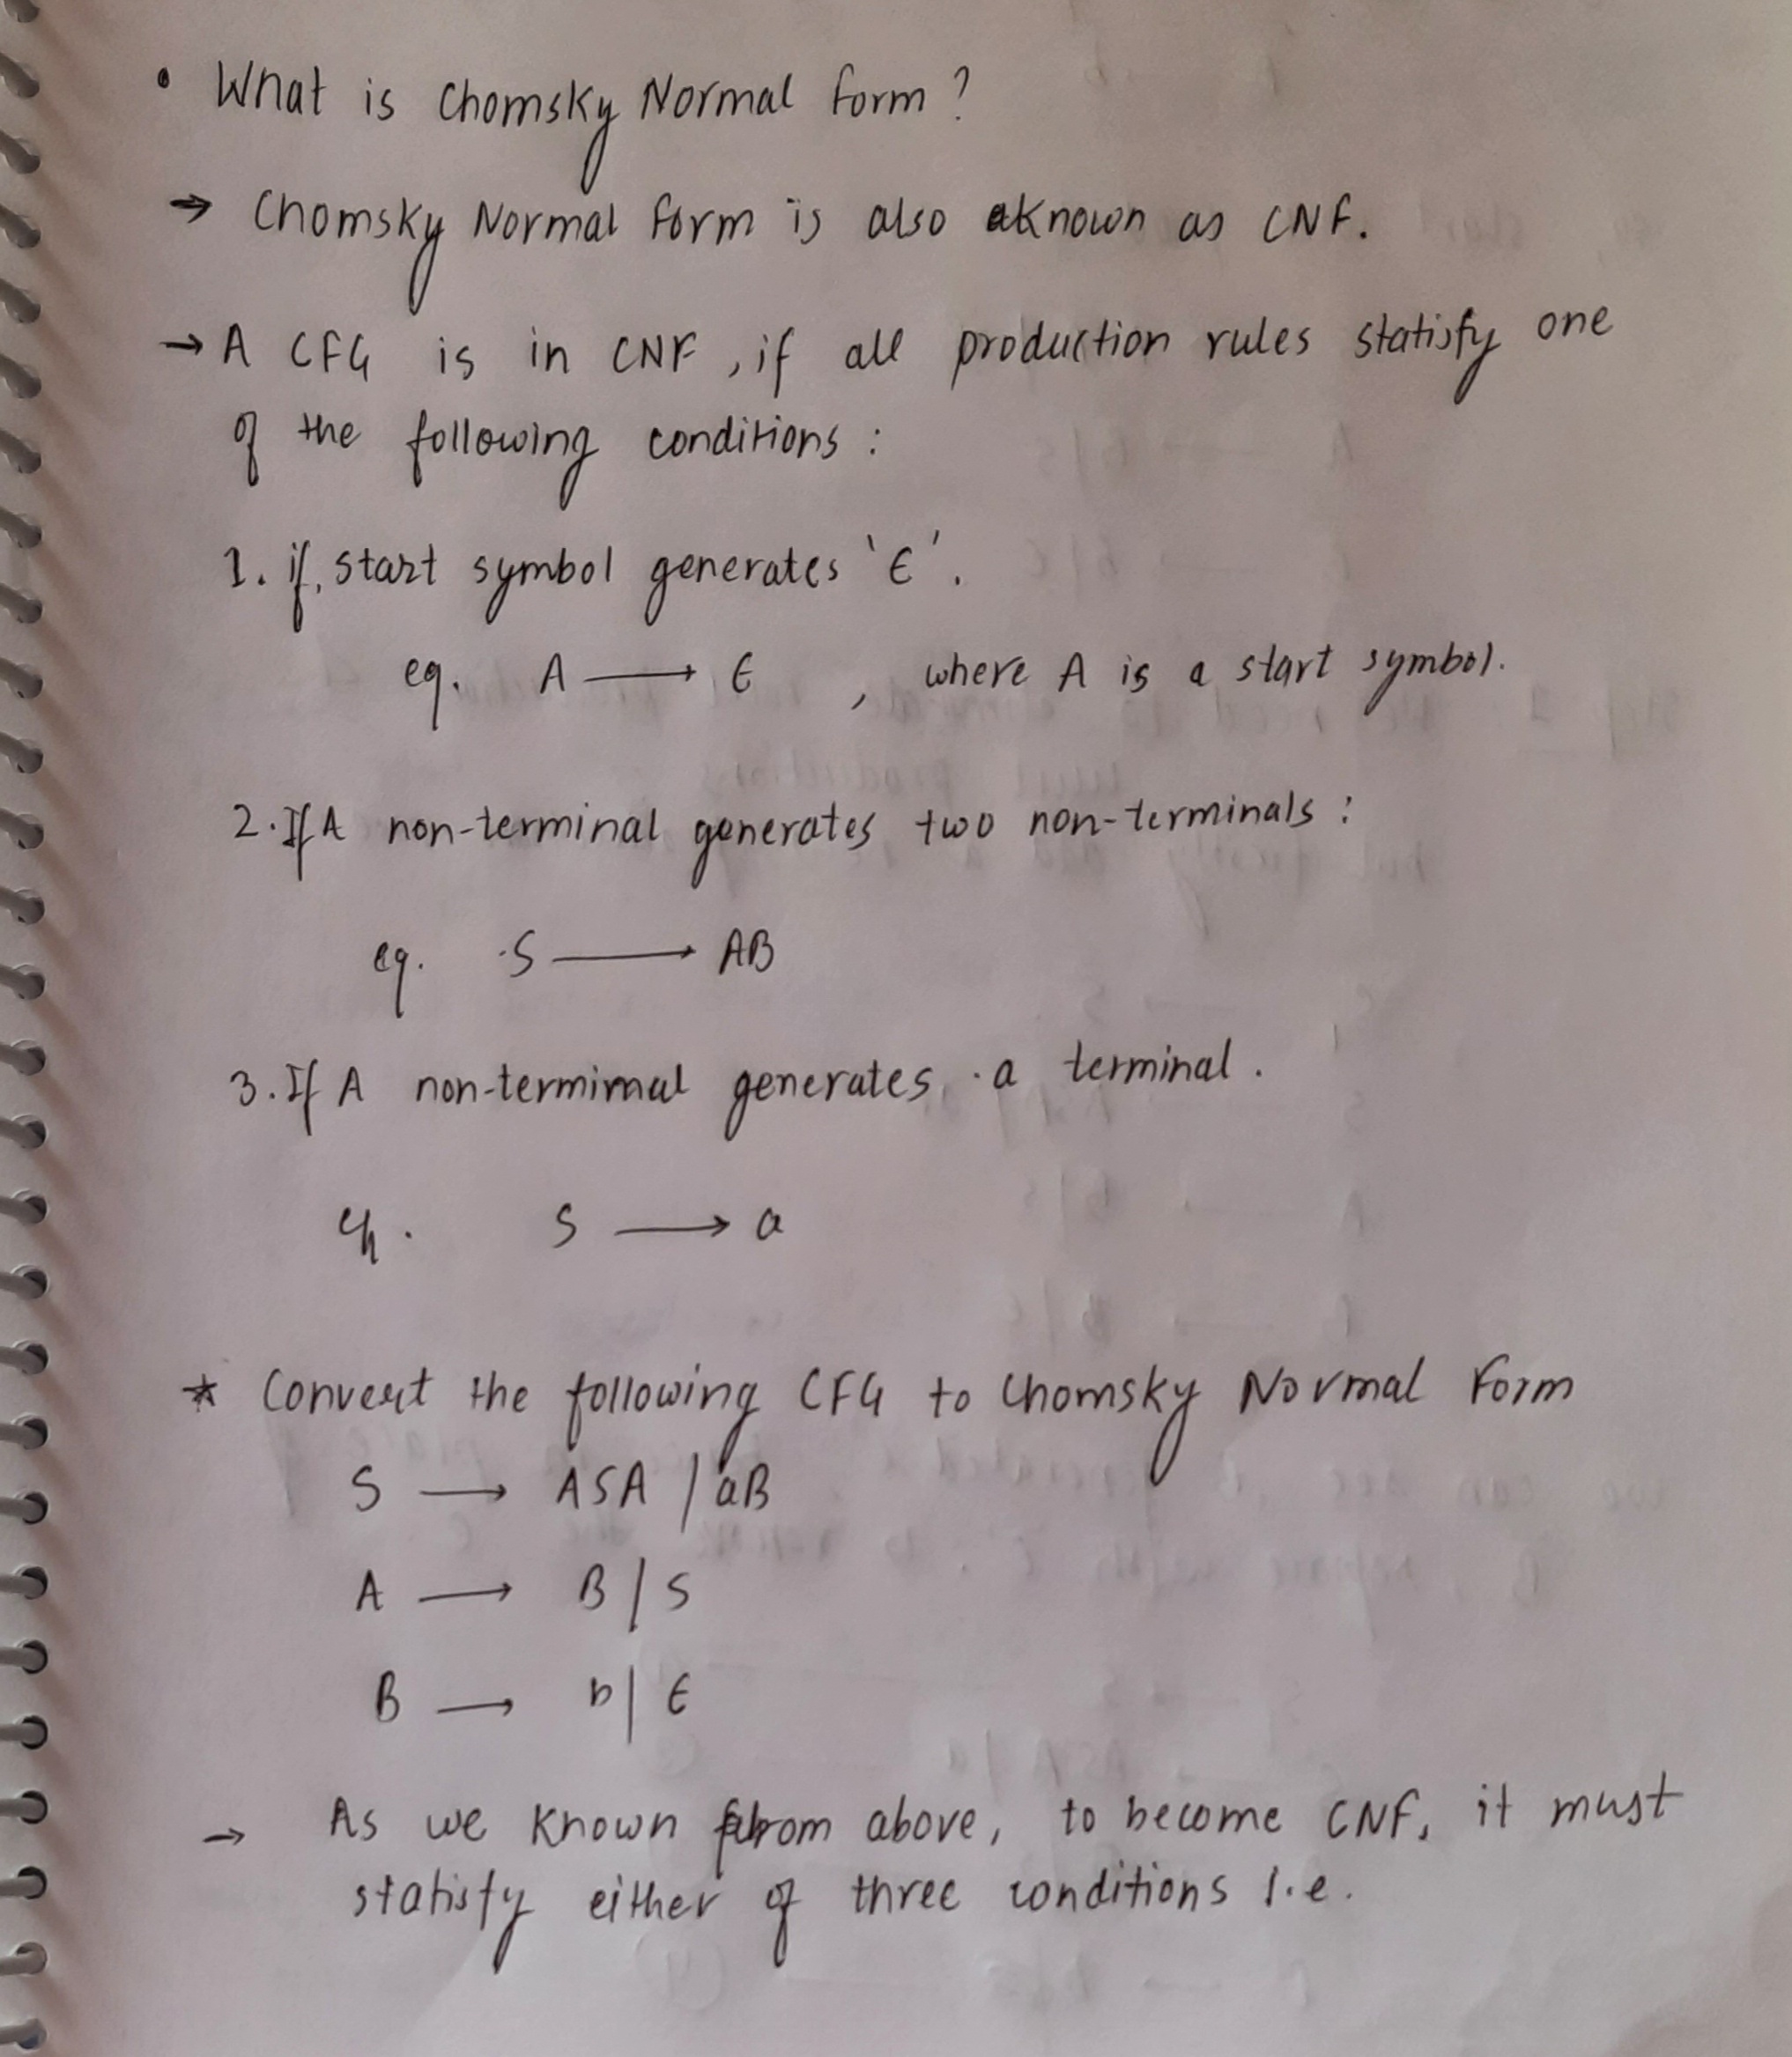 • What is Chomsky Normal form ?
→ Chomsky Normal form is also aknown as CNF.
→ A CFG is in CNF , if all production rules statisfy one
of the following conditions :
1. if, start symbol generates 'ϵ'.
eg. A → ϵ , where A is a start symbol.
2. If A non-terminal generates two non-terminals :
eg. S → AB
3. If A non-termimal generates a terminal.
eg. S → a
* Convert the following CFG to Chomsky Normal Form
S → ASA / aB
A → B / S
B → b | ϵ
→ As we known from above, to become CNF, it must
statisfy either of three conditions i.e.